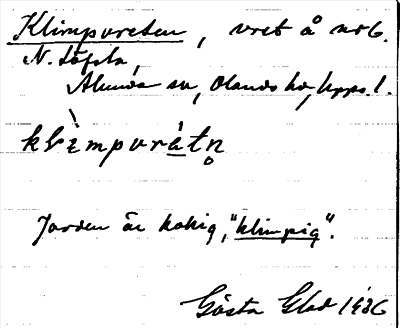 Klimpvreten, vret å no 6.
N. Löfsta,
Alunda sn, Olands hd, Upps. l.
klìmpvrátn̥
Jorden är kokig, "klimpig".
Gösta Glad 1936